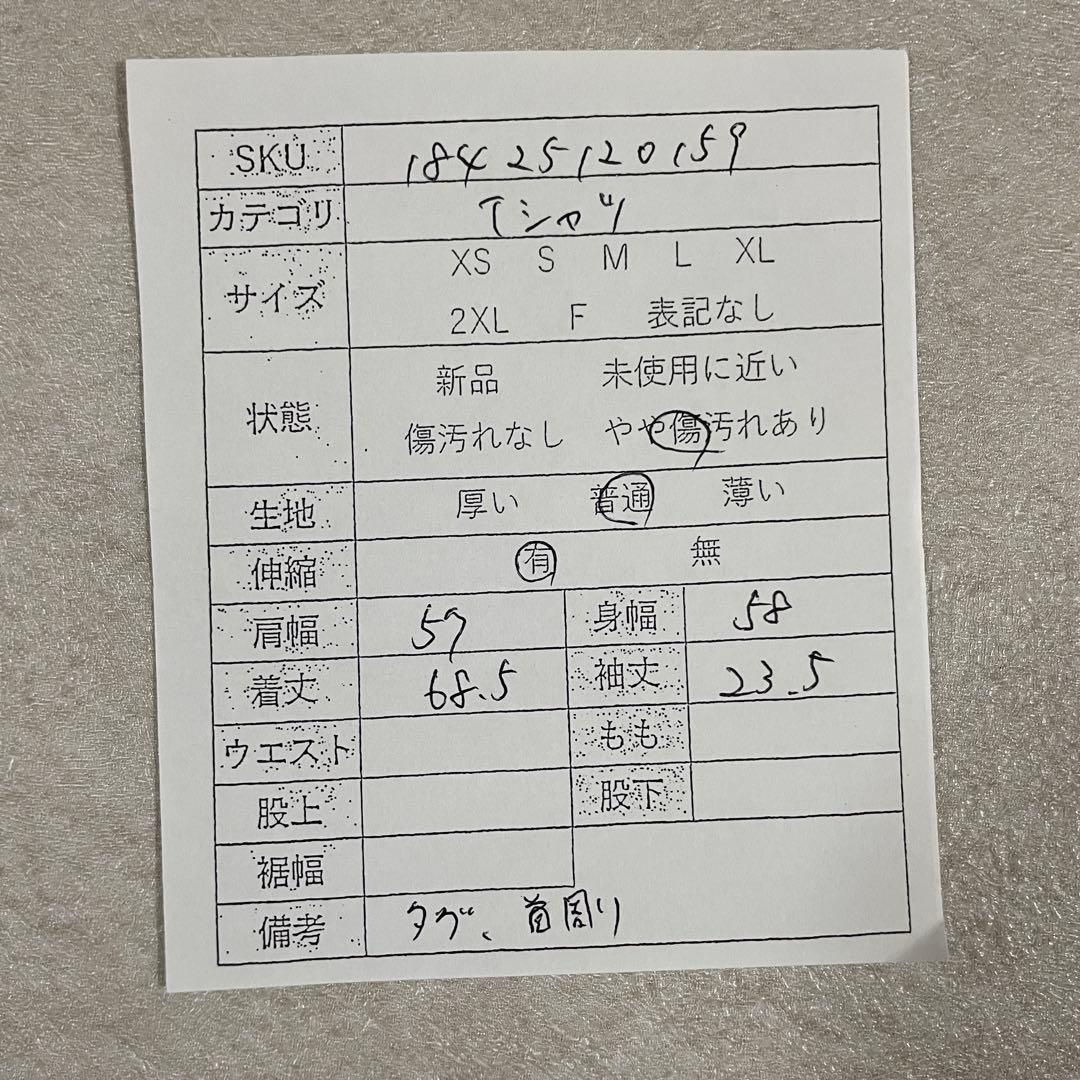 SKU 18425120159
カテゴリ Tシャツ
サイズ XS S M L XL
2XL F 表記なし
状態 新品 未使用に近い
傷汚れなし やや傷汚れあり
生地 厚い 普通 薄い
伸縮 有 無
肩幅 57 身幅 58
着丈 68.5 袖丈 23.5
ウエスト もも
股上 股下
裾幅
備考 タグ、首周り